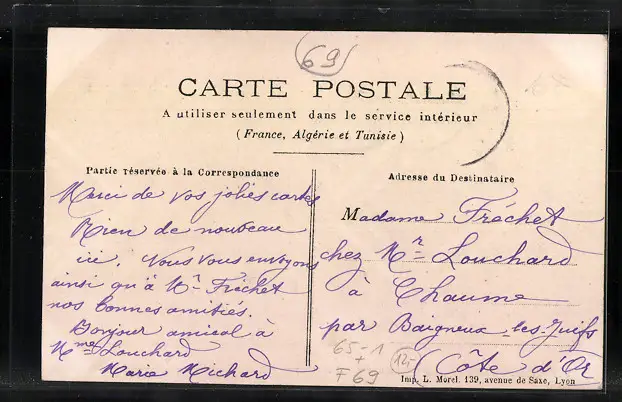 69
CARTE POSTALE
A utiliser seulement dans le service intérieur
(France, Algérie et Tunisie)
Partie réservée à la Correspondance
Merci de vos jolies cartes
Rien de nouveau
ici. Nous vous envoyons
ainsi qu'à Mr Fréchet
nos bonnes amitiés.
Bonjour amical à
Mme Louchard
Marie Michard
Adresse du Destinataire
Madame Fréchet
chez Mr Louchard
à Chaume
par Baigneux-les-Juifs
(Côte d'Or)
65-1
+
F69
12,-
Imp. L. Morel. 139, avenue de Saxe, Lyon